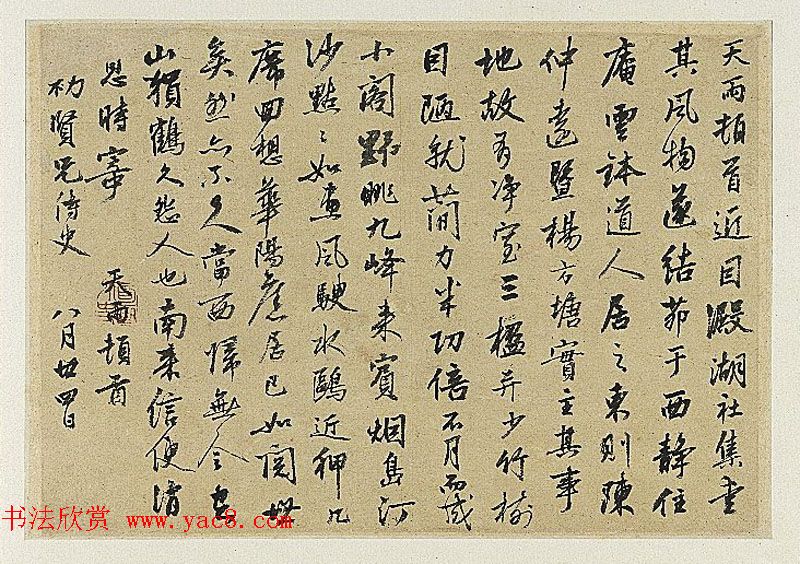 天雨頓首近因澱湖社集重
其風物遂結茆于西靜住
庵雲鉢道人居之東則陳
仲遠暨楊方塘實主其事
地故有淨室三楹并少竹樹
因陋就簡力半功倍不月而成
小閣野眺九峰来賓烟島汀
沙點〻如畫風駛水鷗近狎几
席回想華陽舊居已如閱世
矣然亦不久當西歸無令
山猿鶴久怨人也南来信便消
息時寄
天雨頓首
初賢兄侍史 八月廿四日
书法欣赏 www.yac8.com